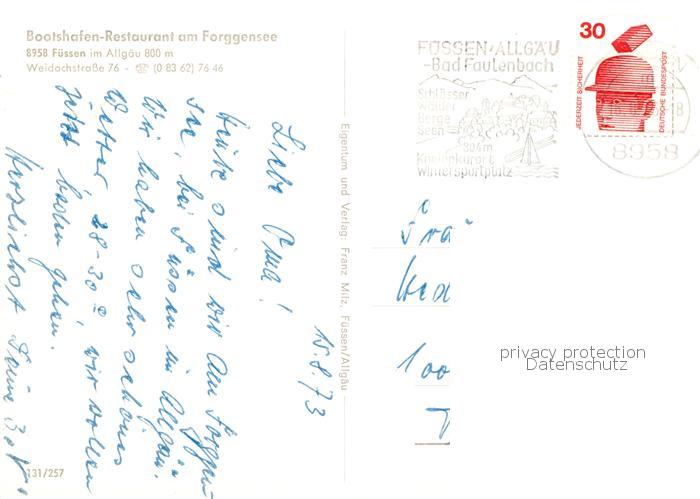 Bootshafen-Restaurant am Forggensee
8958 Füssen im Allgäu 800 m
Weidachstraße 76 - ☏ (0 83 62) 76 46
FÜSSEN·ALLGÄU
-Bad Faulenbach
Schlösser
Wälder
Berge
Seen
804m
Kneippkurort
Wintersportplatz
30
JEDERZEIT SICHERHEIT
DEUTSCHE BUNDESPOST
8958
15.8.73
Liebe Oma!
Heute sind wir am Forggen-
see, bei Füssen im Allgäu.
Wir haben sehr schönes
Wetter 28-30° wir wollen
jetzt baden gehen.
Herzlichst
Eigentum und Verlag: Franz Milz, Füssen/Allgäu
131/257
100
privacy protection
Datenschutz